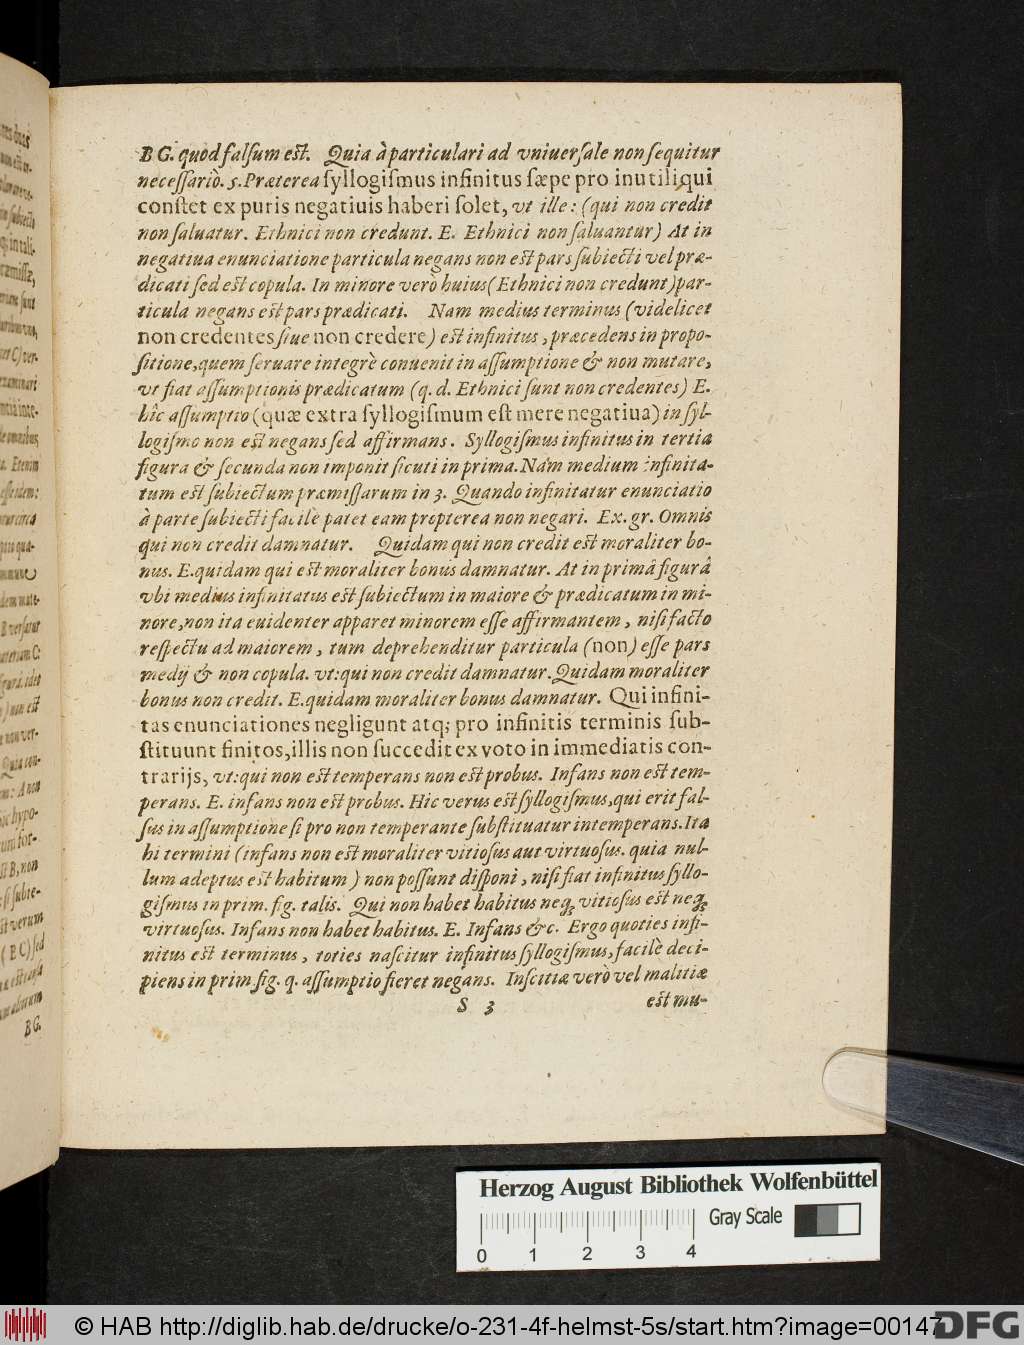 B G. quod falsum est. Quia à particulari ad vniuersale non sequitur
necessariò. 5. Præterea syllogismus infinitus sæpe pro inutili, qui
constet ex puris negatiuis haberi solet, vt ille: (qui non credit
non saluatur. Ethnici non credunt. E. Ethnici non saluantur) At in
negatiua enunciatione particula negans non est pars subiecti vel præ-
dicati sed est copula. In minore verò huius (Ethnici non credunt) par-
ticula negans est pars prædicati. Nam medius terminus (videlicet
non credentes siue non credere) est infinitus, præcedens in propo-
sitione, quem seruare integrè conuenit in assumptione & non mutare,
vt fiat assumptionis prædicatum (q. d. Ethnici sunt non credentes) E.
hic assumptio (quæ extra syllogismum est mere negatiua) in syl-
logismo non est negans sed affirmans. Syllogismus infinitus in tertia
figura & secunda non imponit sicuti in prima. Nam medium infinita-
tum est subiectum præmissarum in 3. Quando infinitatur enunciatio
à parte subiecti facilè patet eam propterea non negari. Ex. gr. Omnis
qui non credit damnatur. Quidam qui non credit est moraliter bo-
nus. E. quidam qui est moraliter bonus damnatur. At in primâ figurâ
vbi medius infinitatus est subiectum in maiore & prædicatum in mi-
nore, non ita euidenter apparet minorem esse affirmantem, nisi facto
respectu ad maiorem, tum deprehenditur particula (non) esse pars
medij & non copula. vt: qui non credit damnatur. Quidam moraliter
bonus non credit. E. quidam moraliter bonus damnatur. Qui infini-
tas enunciationes negligunt atq; pro infinitis terminis sub-
stituunt finitos, illis non succedit ex voto in immediatis con-
trarijs, vt: qui non est temperans non est probus. Infans non est tem-
perans. E. infans non est probus. Hic verus est syllogismus, qui erit fal-
sus in assumptione si pro non temperante substituatur intemperans. Ita
hi termini (infans non est moraliter vitiosus aut virtuosus. quia nul-
lum adeptus est habitum) non possunt disponi, nisi fiat infinitus syllo-
gismus in prim. fig. talis. Qui non habet habitus neq; vitiosus est neq;
virtuosus. Infans non habet habitus. E. Infans &c. Ergo quoties infi-
nitus est terminus, toties nascitur infinitus syllogismus, facilè deci-
piens in prim. fig. q. assumptio fieret negans. Inscitiæ verò vel malitiæ
S 3
est mu-
B G.
Herzog August Bibliothek Wolfenbüttel
Gray Scale
0 1 2 3 4
© HAB http://diglib.hab.de/drucke/o-231-4f-helmst-5s/start.htm?image=00147
DFG